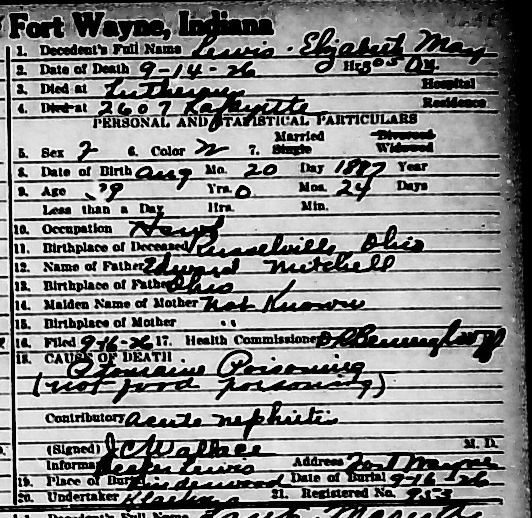 Fort Wayne, Indiana
1. Decedent's Full Name Lewis - Elizabeth May
2. Date of Death 9-14-26 Hr 5 05 M.
3. Died at Lutheran Hospital
4. Died at 2607 Lafayette Residence
PERSONAL AND STATISTICAL PARTICULARS
Married Divorced
5. Sex 6. Color W 7. Single Widowed
8. Date of Birth Aug Mo. 20 Day 1887 Year
9. Age 39 Yrs. 0 Mos. 24 Days
Less than a Day Hrs. Min.
10. Occupation
11. Birthplace of Deceased Russelville, Ohio
12. Name of Father Edward Mitchell
13. Birthplace of Father Ohio
14. Maiden Name of Mother Not Known
15. Birthplace of Mother "
16. Filed 9-16-26 17. Health Commissioner
18. CAUSE OF DEATH
Ptomaine Poisoning
(not food poisoning)
Contributory acute nephritis
(Signed) J C Wallace M. D.
Informant Lewis Address Fort Wayne
19. Place of Burial Lindenwood Date of Burial 9-16-26
20. Undertaker Klaehn 21. Registered No. 953